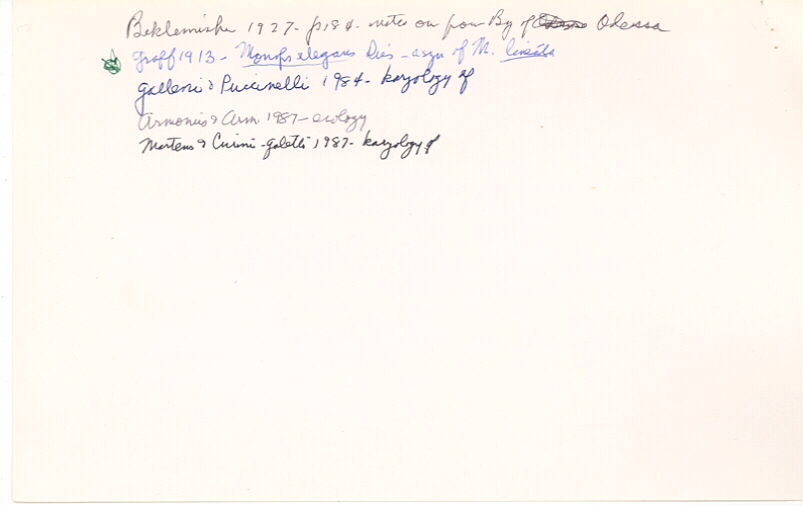 Beklemishev 1927- p184- notes on from Bay of Odessa
Graff 1913- Monops elegans Dies - asyn of M. lineata
Galleni & Puccinelli 1984- karyology of
Armonies & Arm 1987- ecology
Martens & Curini-Galletti 1987- karyology of